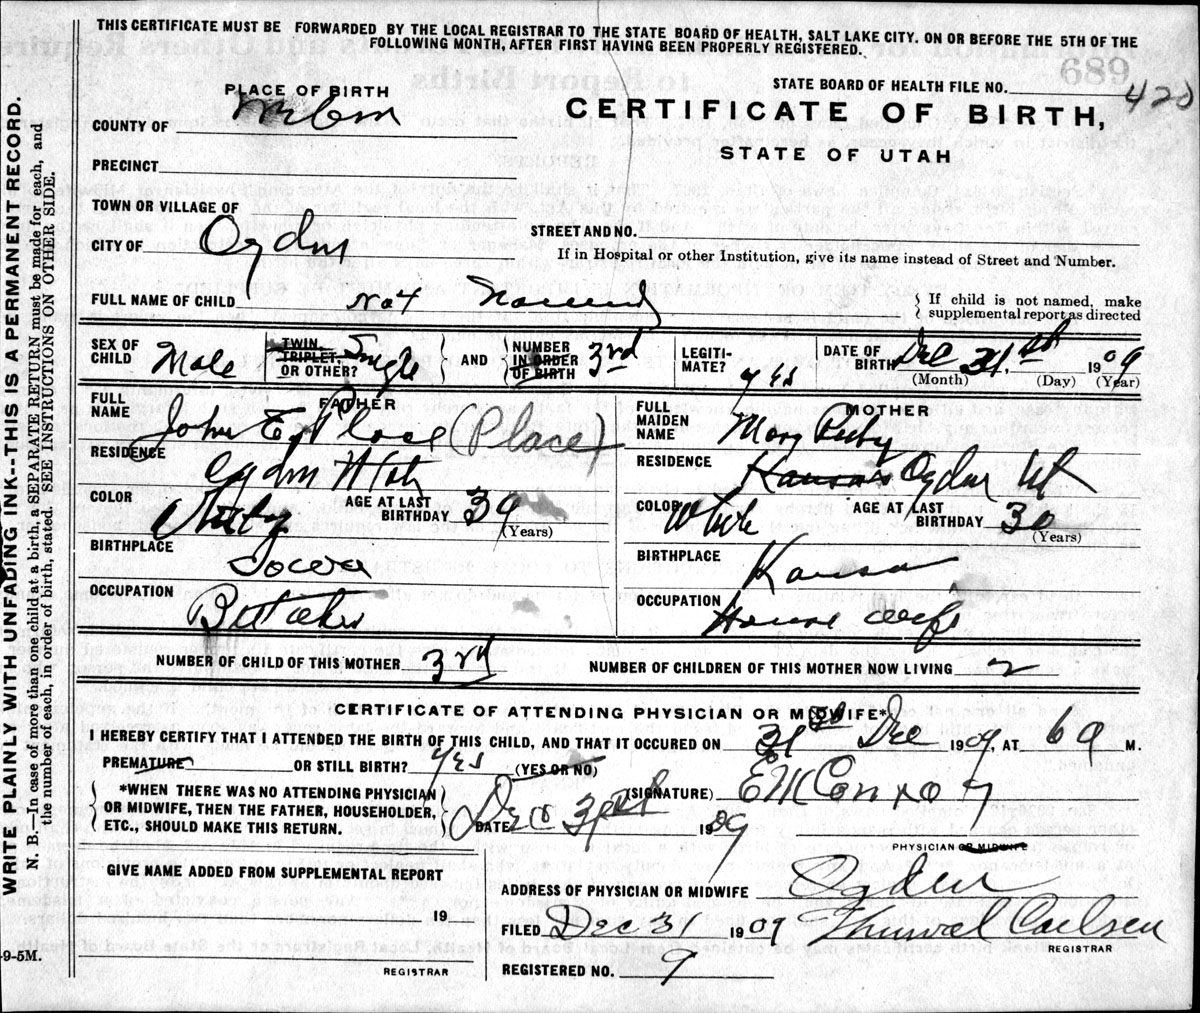 THIS CERTIFICATE MUST BE FORWARDED BY THE LOCAL REGISTRAR TO THE STATE BOARD OF HEALTH, SALT LAKE CITY. ON OR BEFORE THE 5TH OF THE
FOLLOWING MONTH, AFTER FIRST HAVING BEEN PROPERLY REGISTERED.
WRITE PLAINLY WITH UNFADING INK--THIS IS A PERMANENT RECORD.
N. B.—In case of more than one child at a birth, a SEPARATE RETURN must be made for each, and
the number of each, in order of birth, stated. SEE INSTRUCTIONS ON OTHER SIDE.
689
PLACE OF BIRTH
STATE BOARD OF HEALTH FILE NO. 420
CERTIFICATE OF BIRTH,
STATE OF UTAH
COUNTY OF
PRECINCT
TOWN OR VILLAGE OF
CITY OF Ogden
STREET AND NO.
If in Hospital or other Institution, give its name instead of Street and Number.
FULL NAME OF CHILD Not Named
If child is not named, make
supplemental report as directed
SEX OF CHILD Male
TWIN TRIPLET OR OTHER? Single
AND
NUMBER IN ORDER OF BIRTH 3rd
LEGITIMATE? yes
DATE OF BIRTH Dec 31st 1909
(Month) (Day) (Year)
FATHER
FULL NAME John E Place (Place)
RESIDENCE Ogden Utah
COLOR White
AGE AT LAST BIRTHDAY 39 (Years)
BIRTHPLACE Iowa
OCCUPATION Butcher
MOTHER
FULL MAIDEN NAME Mary Ruby
RESIDENCE Kansas Ogden Ut
COLOR White
AGE AT LAST BIRTHDAY 30 (Years)
BIRTHPLACE Kansas
OCCUPATION House wife
NUMBER OF CHILD OF THIS MOTHER 3rd
NUMBER OF CHILDREN OF THIS MOTHER NOW LIVING 2
CERTIFICATE OF ATTENDING PHYSICIAN OR MIDWIFE*
I HEREBY CERTIFY THAT I ATTENDED THE BIRTH OF THIS CHILD, AND THAT IT OCCURED ON 31st Dec 1909, AT 6 a M.
PREMATURE OR STILL BIRTH? yes (YES OR NO)
*WHEN THERE WAS NO ATTENDING PHYSICIAN
OR MIDWIFE, THEN THE FATHER, HOUSEHOLDER,
ETC., SHOULD MAKE THIS RETURN.
(SIGNATURE) E M Conroy
DATE Dec 31st 1909
PHYSICIAN OR MIDWIFE
GIVE NAME ADDED FROM SUPPLEMENTAL REPORT
19
REGISTRAR
ADDRESS OF PHYSICIAN OR MIDWIFE Ogden
FILED Dec 31 1909 Carlsen
REGISTRAR
REGISTERED NO. 9
-9-5M.